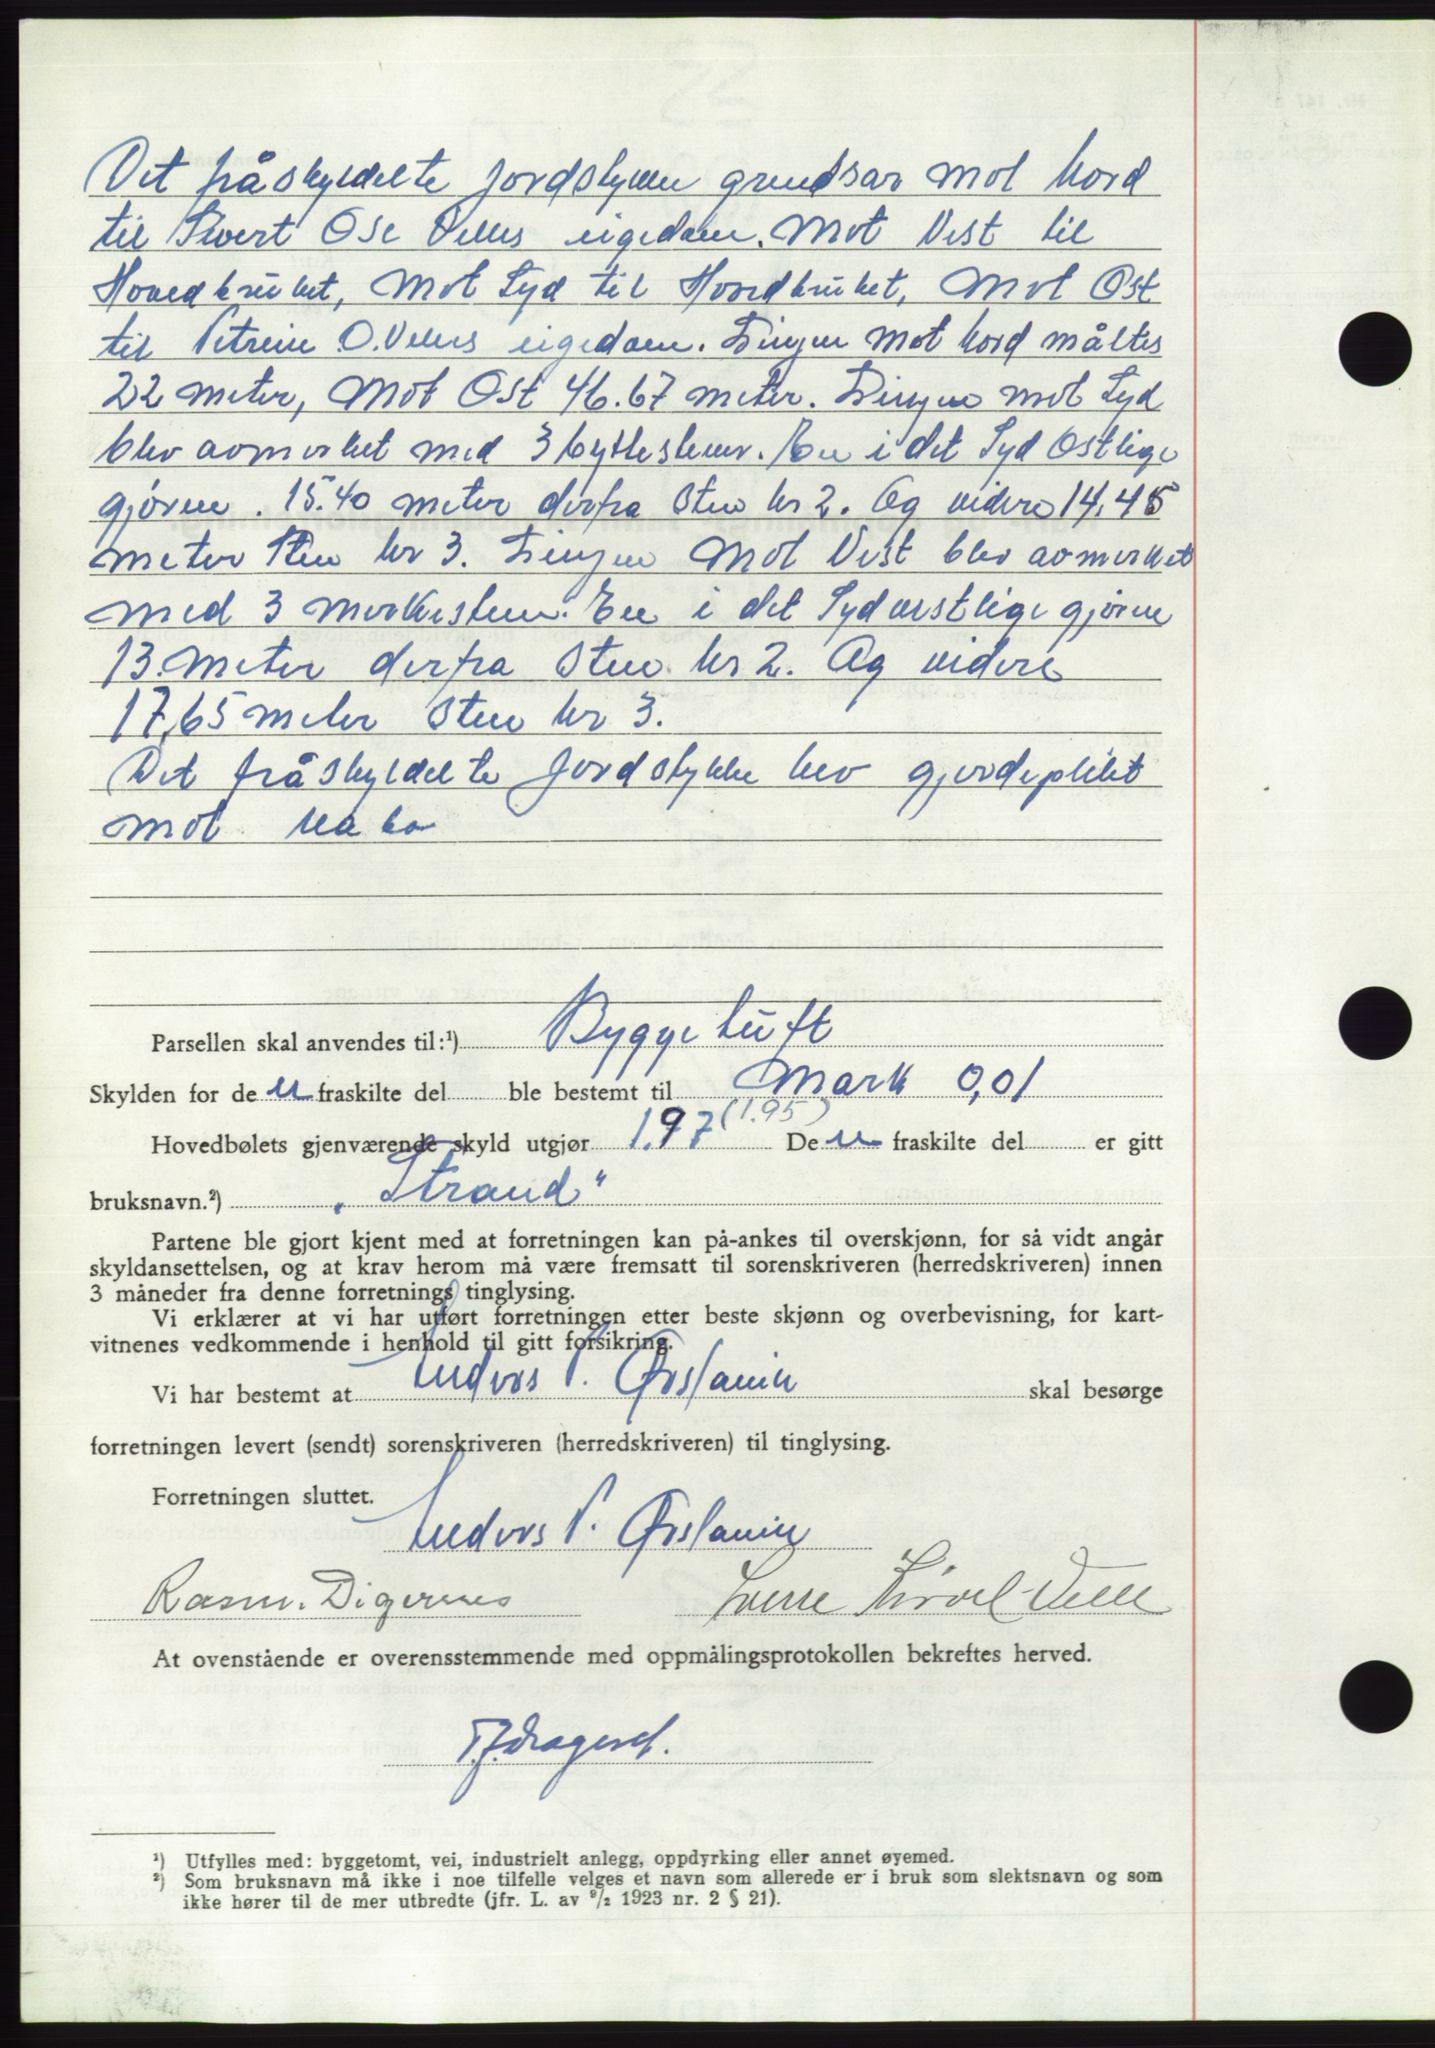 Det fråskyldelte Jordstykke grendsar mot Nord
til Sivert Ose Velles eigedom. Mot Vest til
Hovedbruket, Mot Syd til Hovedbruket, Mot Ost
til Petrine O. Velles eigedom. Linjen mot Nord måltes
22 meter, Mot Ost 46.67 meter. Linjen mot Syd
blev avmerket med 3 byttestener. En i det Syd Ostlige
gjørne. 15.40 meter derfra Sten Nr 2. Og videre 14.45
meter Sten Nr 3. Linjen Mot Vest blev avmerket
med 3 merkestene. En i det Sydvestlige gjørne
13 meter derfra Sten Nr 2. Og videre
17,65 meter Sten Nr 3.
Det fråskyldelte Jordstykke hev gjerdeplikt
mot Nabo
Parsellen skal anvendes til:¹) Byggetuft
Skylden for de n fraskilte del ble bestemt til Mark 0,01
Hovedbølets gjenværende skyld utgjør 1.97 (1.95) De n fraskilte del er gitt
bruksnavn.²) „Strand"
Partene ble gjort kjent med at forretningen kan på-ankes til overskjønn, for så vidt angår
skyldansettelsen, og at krav herom må være fremsatt til sorenskriveren (herredskriveren) innen
3 måneder fra denne forretnings tinglysing.
Vi erklærer at vi har utført forretningen etter beste skjønn og overbevisning, for kart-
vitnenes vedkommende i henhold til gitt forsikring.
Vi har bestemt at Anders P. Ørstavik skal besørge
forretningen levert (sendt) sorenskriveren (herredskriveren) til tinglysing.
Forretningen sluttet.
Anders P. Ørstavik
Rasm. Digernes Sverre Kirvel-Velle
At ovenstående er overensstemmende med oppmålingsprotokollen bekreftes herved.
¹) Utfylles med: byggetomt, vei, industrielt anlegg, oppdyrking eller annet øyemed.
²) Som bruksnavn må ikke i noe tilfelle velges et navn som allerede er i bruk som slektsnavn og som
ikke hører til de mer utbredte (jfr. L. av ⁹/₂ 1923 nr. 2 § 21).